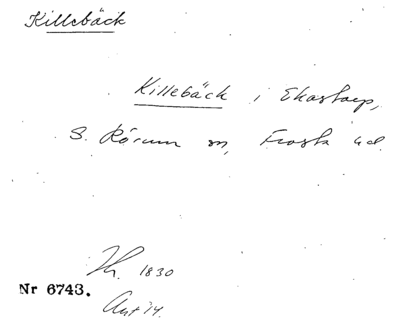 Killebäck
Killebäck i Ekastorp,
S. Rörum sn, Frosta hd.
Th. 1830
Nr 6743.
Avt 14.